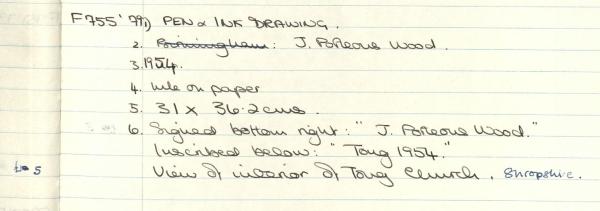 F755'79,1) PEN & INK DRAWING.
2. Birmingham: J. Porteous Wood.
3. 1954.
4. Ink on paper
5. 31 x 36.2 cms.
6. Signed bottom right: "J. Porteous Wood."
Inscribed below: "Tong 1954."
5 View of interior of Tong Church. Shropshire.